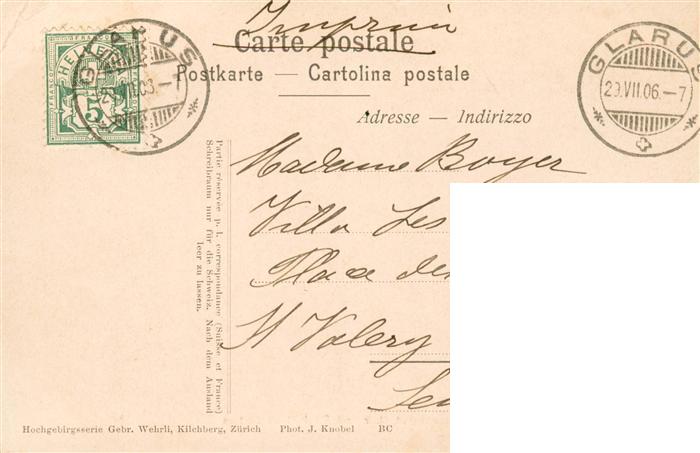 Imprimé
Carte postale
Postkarte — Cartolina postale
Adresse — Indirizzo
HELVETIA
FRANCO
5
GLARUS
GLARUS
29.VII.06.–7
Madame Boyer
Villa Les
Place des
St Valery
Partie réservée p. l. correspondance (Suisse et France)
Schreibraum nur für die Schweiz. Nach dem Ausland
leer zu lassen.
Hochgebirgsserie Gebr. Wehrli, Kilchberg, Zürich Phot. J. Knobel BC